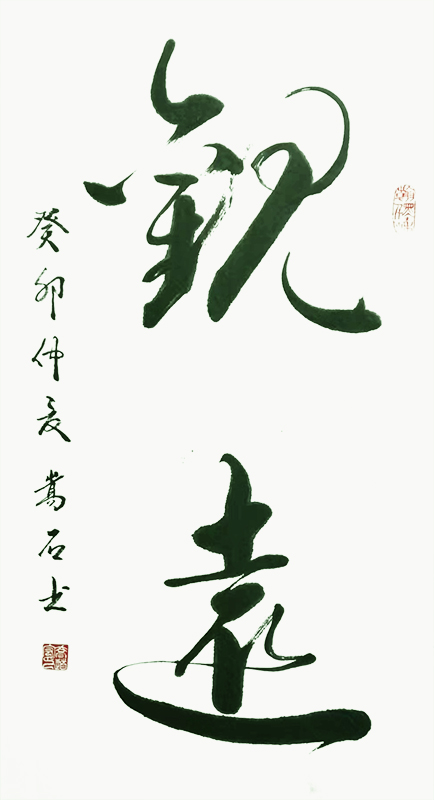 觀遠
癸卯仲夏嵩石书